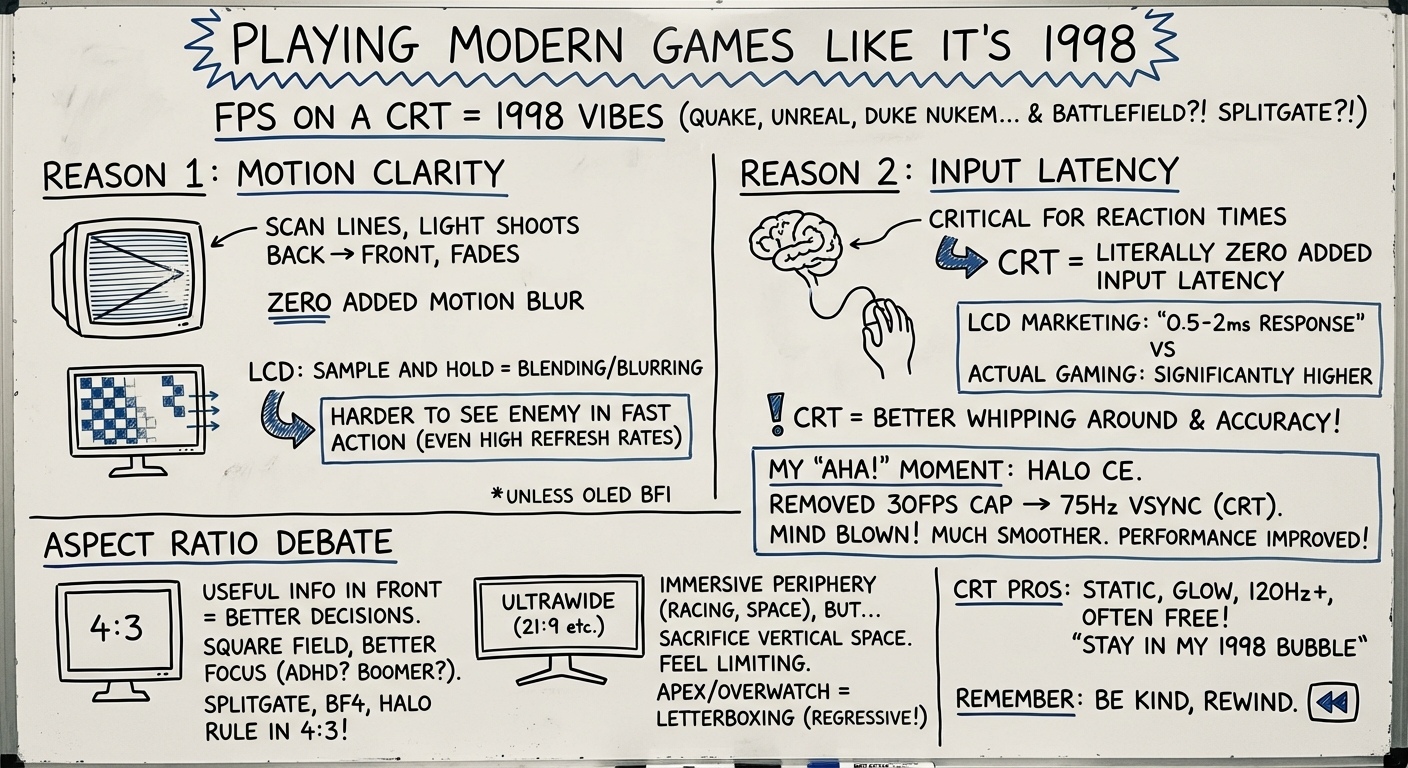 PLAYING MODERN GAMES LIKE IT'S 1998
FPS ON A CRT = 1998 VIBES (QUAKE, UNREAL, DUKE NUKEM... & BATTLEFIELD?! SPLITGATE?!)
REASON 1: MOTION CLARITY
SCAN LINES, LIGHT SHOOTS
BACK → FRONT, FADES
ZERO ADDED MOTION BLUR
LCD: SAMPLE AND HOLD = BLENDING/BLURRING
HARDER TO SEE ENEMY IN FAST
ACTION (EVEN HIGH REFRESH RATES)
*UNLESS OLED BFI
REASON 2: INPUT LATENCY
CRITICAL FOR REACTION TIMES
CRT = LITERALLY ZERO ADDED
INPUT LATENCY
LCD MARKETING: "0.5-2ms RESPONSE"
VS
ACTUAL GAMING: SIGNIFICANTLY HIGHER
! CRT = BETTER WHIPPING AROUND & ACCURACY!
MY "AHA!" MOMENT: HALO CE.
REMOVED 30FPS CAP → 75Hz VSYNC (CRT).
MIND BLOWN! MUCH SMOOTHER. PERFORMANCE IMPROVED!
ASPECT RATIO DEBATE
4:3
USEFUL INFO IN FRONT
= BETTER DECISIONS.
SQUARE FIELD, BETTER
FOCUS (ADHD? BOOMER?).
SPLITGATE, BF4, HALO
RULE IN 4:3!
ULTRAWIDE
(21:9 etc.)
IMMERSIVE PERIPHERY
(RACING, SPACE), BUT...
SACRIFICE VERTICAL SPACE.
FEEL LIMITING.
APEX/OVERWATCH =
LETTERBOXING (REGRESSIVE!)
CRT PROS: STATIC, GLOW, 120Hz+,
OFTEN FREE!
"STAY IN MY 1998 BUBBLE"
REMEMBER: BE KIND, REWIND.